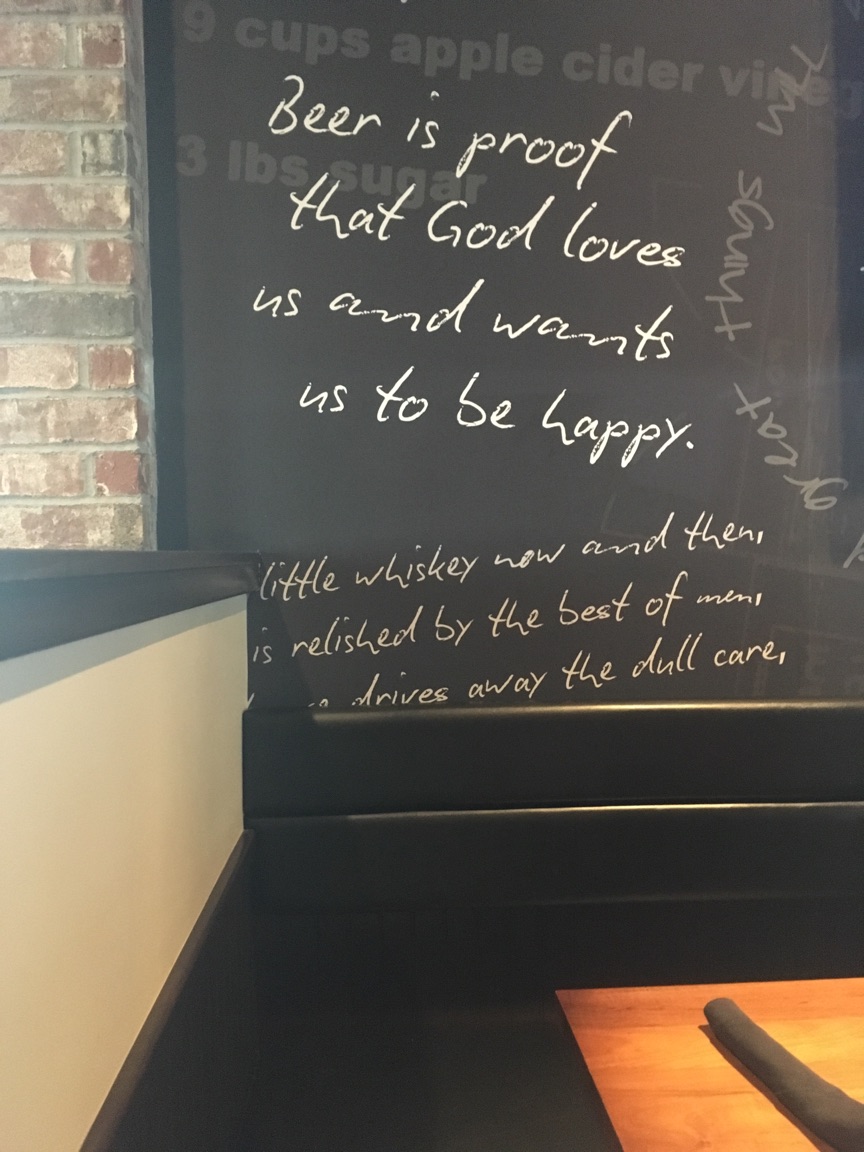 9 cups apple cider vineg
3 lbs sugar
Beer is proof
that God loves
us and wants
us to be happy.
great things
little whiskey now and then,
is relished by the best of men,
drives away the dull care,